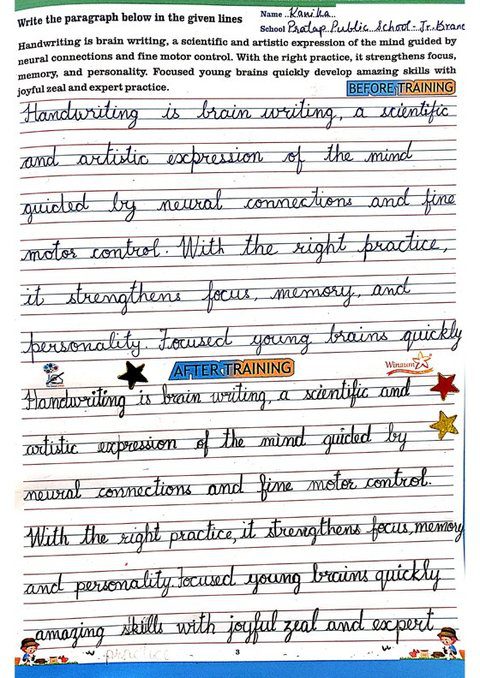 Write the paragraph below in the given lines
Name. Kanika.
School Pratap Public School - Jr. Branc
Handwriting is brain writing, a scientific and artistic expression of the mind guided by
neural connections and fine motor control. With the right practice, it strengthens focus,
memory, and personality. Focused young brains quickly develop amazing skills with
joyful zeal and expert practice.
BEFORE TRAINING
Handwriting is brain writing, a scientific
and artistic expression of the mind
guided by neural connections and fine
motor control. With the right practice,
it strengthens focus, memory, and
personality. Focused young brains quickly
AFTER TRAINING
Handwriting is brain writing, a scientific and
artistic expression of the mind guided by
neural connections and fine motor control.
With the right practice, it strengthens focus, memory
and personality. Focused young brains quickly
amazing skills with joyful zeal and expert
practice
3